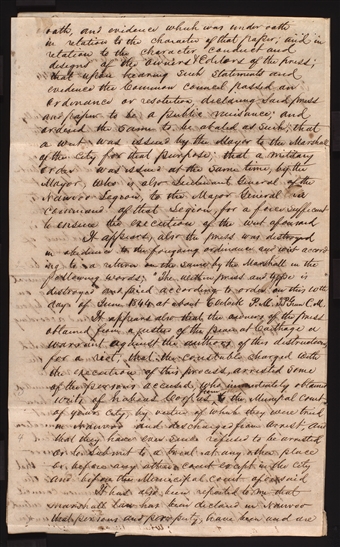 oath, and evidence which was under oath
in relation to the character of that paper; and in
relation to the character conduct and
designs of the owners & Editors of the press;
that upon hearing such statements and
evidence the Common Council passed an
Ordinance or resolution declaring said press
and paper to be a public nuisance; and
ordered the same to be abated as such; that
a writ was issued by the Mayor to the Marshall
of the City for that purpose; that a military
order was issued at the same time, by the
Mayor, who is also Lieutenant General of the
Nauvoo Legion, to the Major General in
command of that Legion, for a force sufficient
to ensure the execution of the writ aforesaid
It appears also the press was destroyed
in obedience to the foregoing ordinance and writ accord
ing to a return on the same by the Marshall in the
following words; The within press and type is
destroyed and pied according to order on this 10th
day of June 1844 at about 8 oclock P.M. J.P. Green C.M.
It appears also that the owners of the press
obtained from a justice of the peace at Carthage a
warrant against the authors of this destruction
for a riot; that the constable charged with
the execution of this process, arrested some
of the persons accused, who immediately obtained
writs of habeas Corpus from the Municipal Court
of your city, by virtue of which they were tried
in Nauvoo and discharged from arrest, and
that they have ever since refused to be arrested
or to submit to a trial at any other place
or before any other court except in the city
and before the Municipal Court aforesaid
It has also been reported to me that
marshall Law has been declared in Nauvoo
that persons and property have been and are